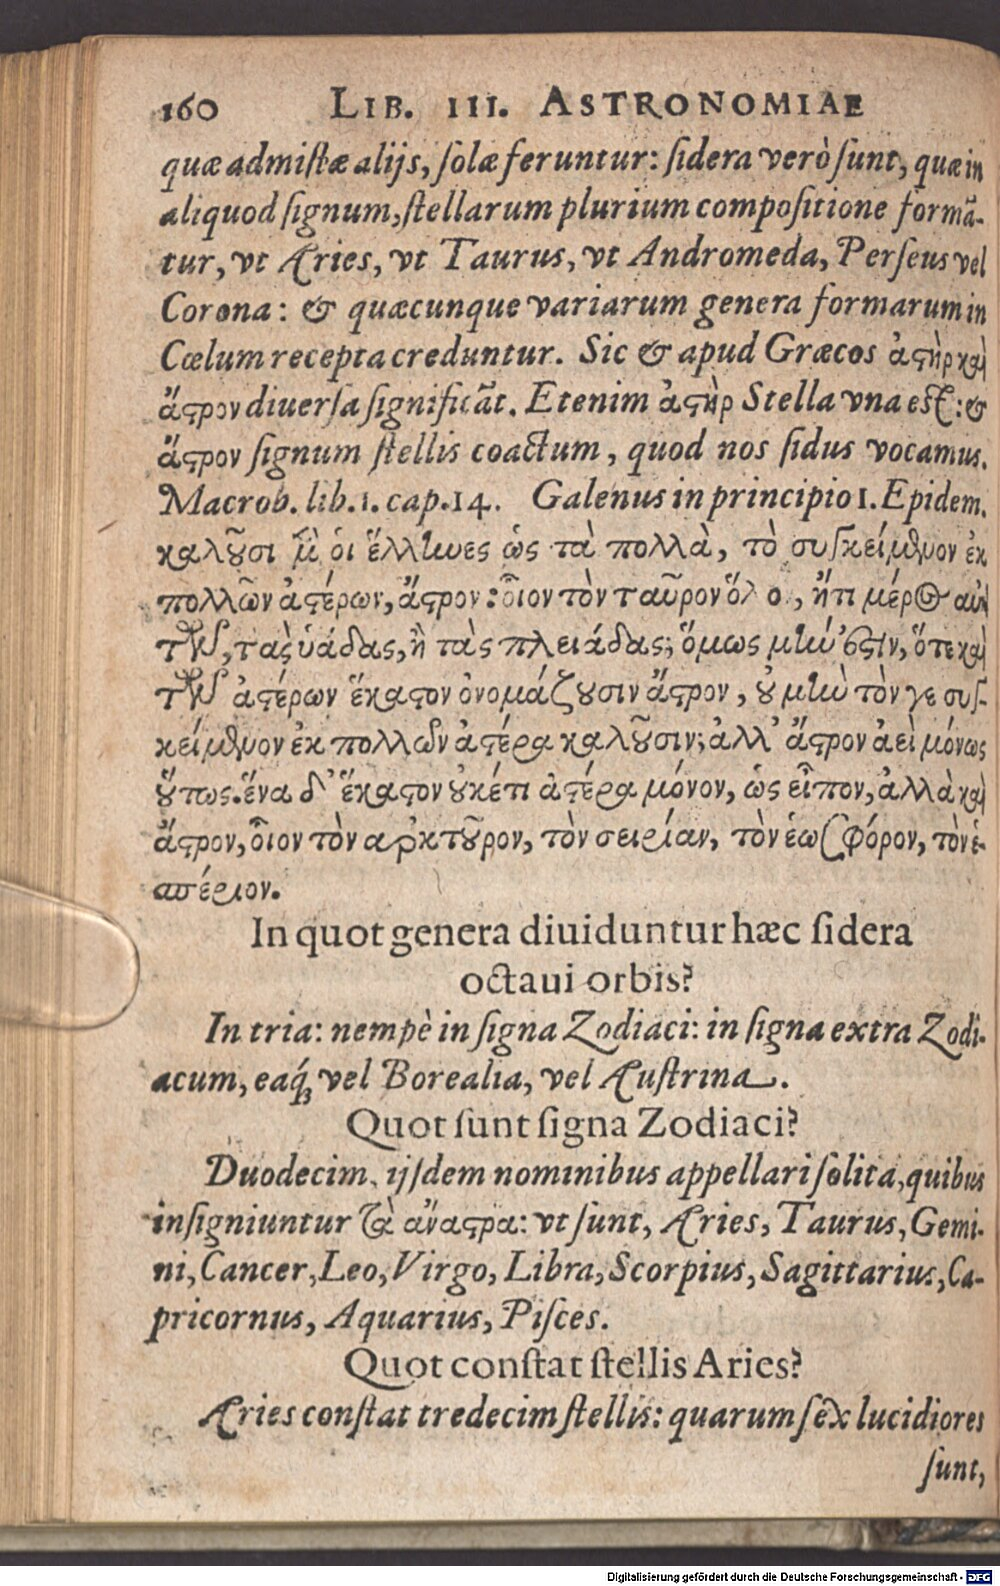 160 LIB. III. ASTRONOMIAE
quæ admiſtæ alijs, ſolæ feruntur: ſidera verò ſunt, quæ in
aliquod ſignum, ſtellarum plurium compoſitione formã-
tur, vt Aries, vt Taurus, vt Andromeda, Perſeus vel
Corona: & quæcunque variarum genera formarum in
Cœlum recepta creduntur. Sic & apud Græcos ἀςὴρ καὶ
ἄςρον diuerſa ſignificãt. Etenim ἀςὴρ Stella vna eſt: &
ἄςρον ſignum ſtellis coactum, quod nos ſidus vocamus.
Macrob. lib. 1. cap. 14. Galenus in principio 1. Epidem.
καλοῦσι μὲν ὁι ἕλληνες ὡς τὰ πολλὰ, τὸ συγκείμενον ἐκ
πολλῶν ἀςέρων, ἄςρον: ὃιον τὸν ταῦρον ὅλο, ἤτι μέρος αὐ
τῶν, τὰς ὑάδας, ἢ τὰς πλειάδας; ὅμως μὴν ἔςιν, ὅτε καὶ
τῶν ἀςέρων ἕκαςον ὀνομάζουσιν ἄςρον, οὐ μὴν τὸν γε συγ-
κείμενον ἐκ πολλῶν ἀςέρα καλοῦσιν; ἀλλ' ἄςρον ἀεὶ μόνως
οὕτως. ἕνα δ' ἕκαςον οὐκέτι ἀςέρα μόνον, ὡς εἶπον, ἀλλὰ καὶ
ἄςρον, ὃιον τὸν αρκτοῦρον, τὸν σειρίαν, τὸν ἑωσφόρον, τὸν ἑ-
σπέριον.
In quot genera diuiduntur hæc ſidera
octaui orbis?
In tria: nempè in ſigna Zodiaci: in ſigna extra Zodi-
acum, eaq́; vel Borealia, vel Auſtrina.
Quot ſunt ſigna Zodiaci?
Duodecim, ijſdem nominibus appellari ſolita, quibus
inſigniuntur τὰ ἄναςρα: vt ſunt, Aries, Taurus, Gemi-
ni, Cancer, Leo, Virgo, Libra, Scorpius, Sagittarius, Ca-
pricornus, Aquarius, Piſces.
Quot conſtat ſtellis Aries?
Aries conſtat tredecim ſtellis: quarum ſex lucidiores
ſunt,
Digitalisierung gefördert durch die Deutsche Forschungsgemeinschaft - DFG